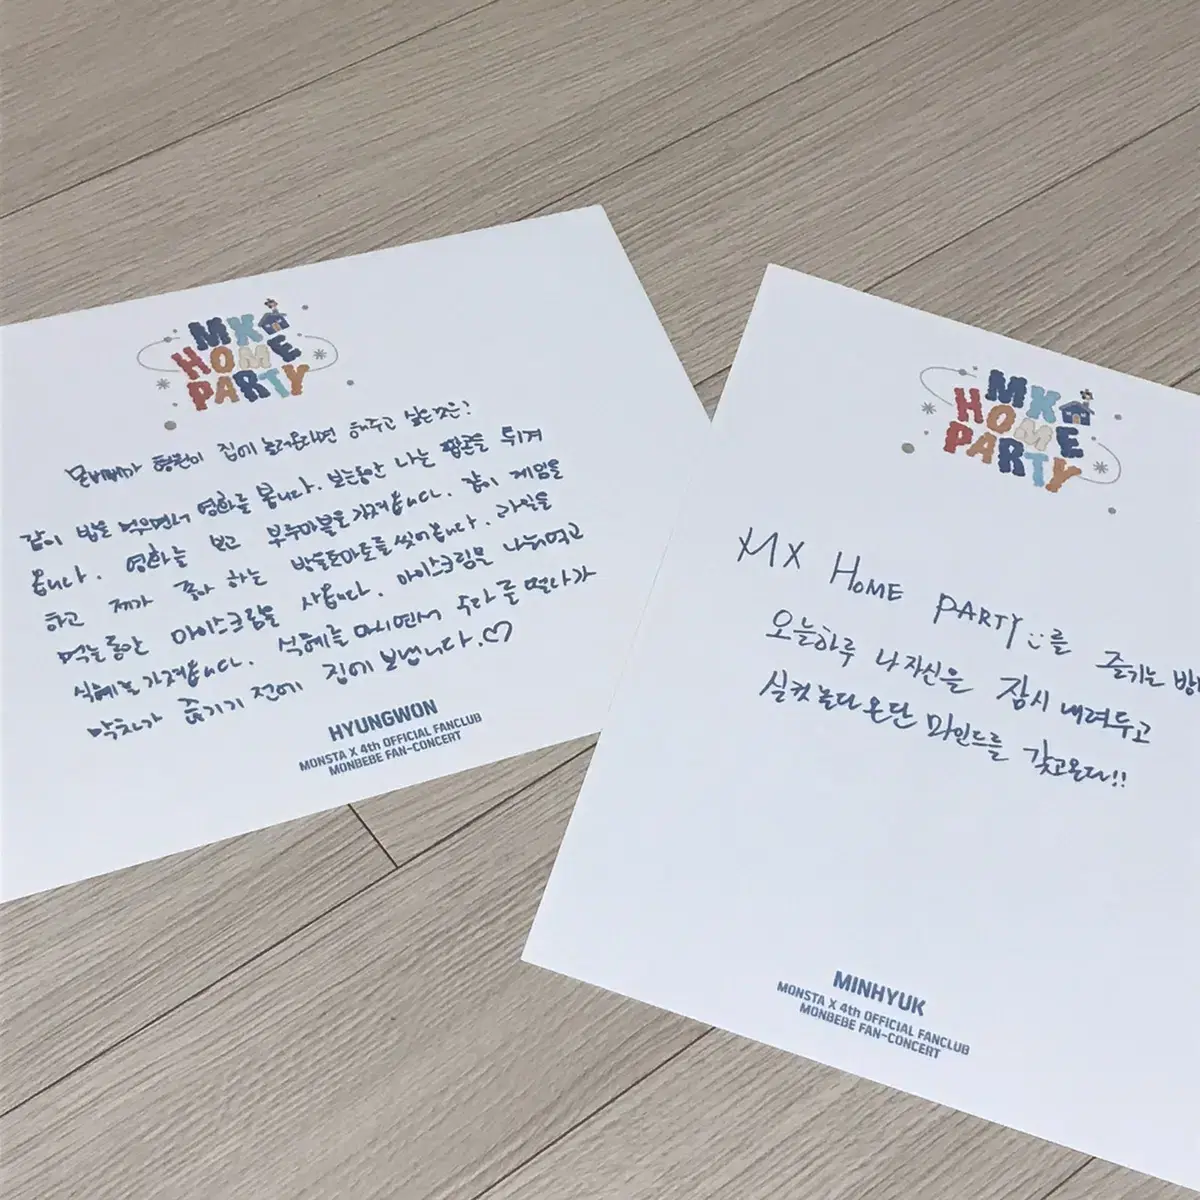 MX
HOME
PARTY
몬베베가 형원이 집에 놀러온다면 해주고 싶은것은?
같이 밥을 먹으면서 영화를 봅니다. 보는동안 나는 팝콘을 튀겨
옵니다. 영화를 보고 부루마블을 가져옵니다. 같이 게임을
하고 제가 좋아 하는 방울토마토를 씻어옵니다. 과일을
먹는동안 아이스크림을 사옵니다. 아이스크림을 나눠먹고
식혜를 가져옵니다. 식혜를 마시면서 수다를 떨다가
막차가 끊기기 전에 집에 보냅니다.♡
HYUNGWON
MONSTA X 4th OFFICIAL FANCLUB
MONBEBE FAN-CONCERT
MX
HOME
PARTY
MX HOME PARTY를 즐기는
오늘하루 나 자신을 잠시 내려두고
실컷놀다온단 마인드를 갖고온다!!
MINHYUK
MONSTA X 4th OFFICIAL FANCLUB
MONBEBE FAN-CONCERT